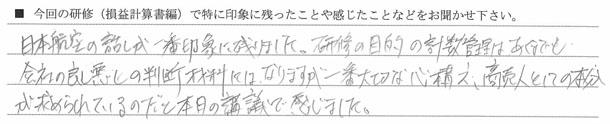 ■ 今回の研修（損益計算書編）で特に印象に残ったことや感じたことなどをお聞かせ下さい。
日本航空の話しが一番印象に残りました。研修の目的の計数管理はあくまでも
会社の良し悪しの判断材料にはなりますが一番大切な心構え、商売人としての本分
が求められているのだと本日の講義で感じました。